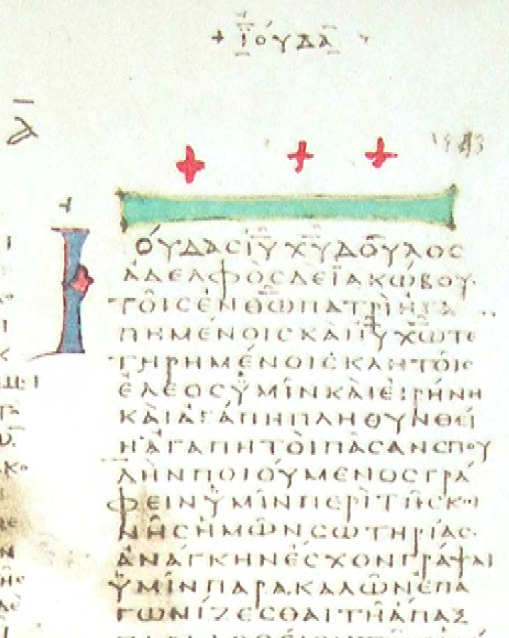 + ΪΟΥΔΑ
Α̅
ΙΟΥΔΑϹΙ̅Υ̅Χ̅Υ̅ΔΟΥΛΟϹ
ΑΔΕΛΦΟϹΔΕΪΑΚΩΒΟΥ
ΤΟΙϹΕΝΘ̅Ω̅ΠΑΤΡΙΗΓΑ
ΠΗΜΕΝΟΙϹΚΑΙΙ̅Υ̅Χ̅Ω̅ΤΕ
ΤΗΡΗΜΕΝΟΙϹΚΛΗΤΟΙϹ
ΕΛΕΟϹΫΜΙΝΚΑΙΕΙΡΗΝΗ
ΚΑΙΑΓΑΠΗΠΛΗΘΥΝΘΕΙ
ΗΑΓΑΠΗΤΟΙΠΑϹΑΝϹΠΟΥ
ΔΗΝΠΟΙΟΥΜΕΝΟϹΓΡΑ
ΦΕΙΝΫΜΙΝΠΕΡΙΤΗϹΚΟΙ
ΝΗϹΗΜΩΝϹΩΤΗΡΙΑϹ
ΑΝΑΓΚΗΝΕϹΧΟΝΓΡΑΨΑΙ
ΫΜΙΝΠΑΡΑΚΑΛΩΝΕΠΑ
ΓΩΝΙΖΕϹΘΑΙΤΗΑΠΑΞ